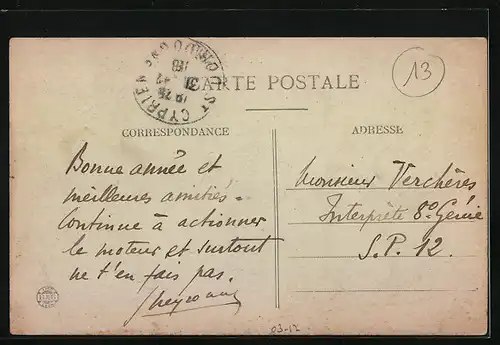 13
CARTE POSTALE
ST CYPRIEN
DORDOGNE
18 25
31 -12
18
CORRESPONDANCE
ADRESSE
Bonne année et
meilleures amitiés.
Continue à actionner
le moteur et surtout
ne t'en fais pas.
Monsieur Verchères
Interprète 8e Génie
S.P. 12.
03-12